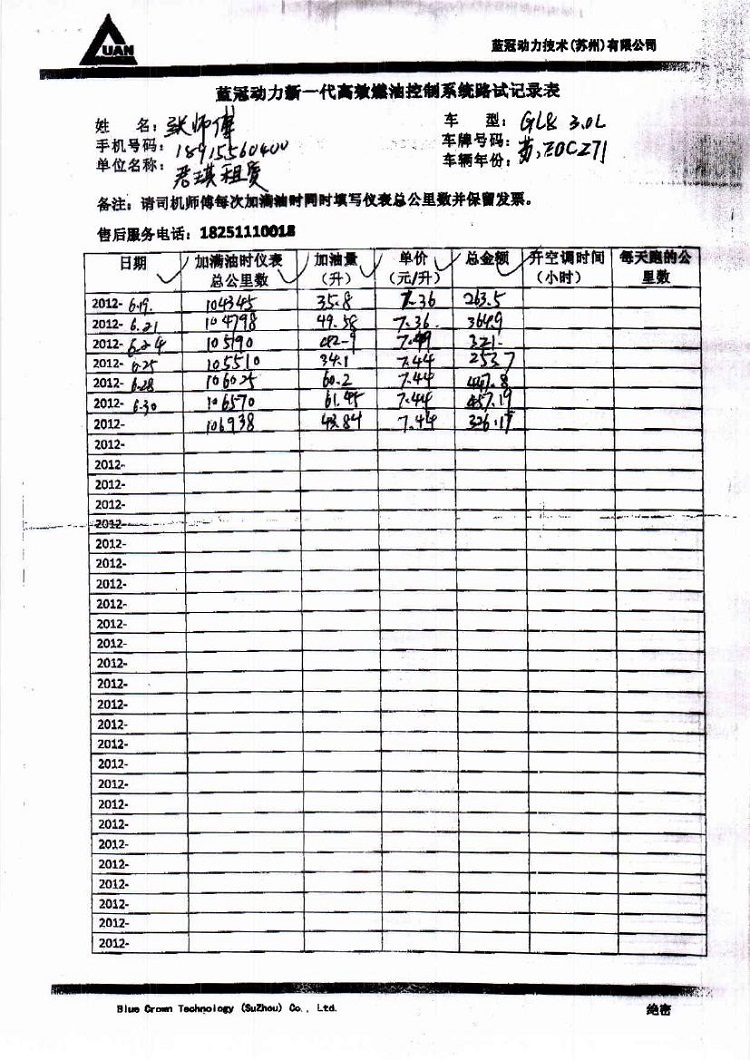 UAN
蓝冠动力技术(苏州)有限公司
蓝冠动力新一代高效燃油控制系统路试记录表
姓 名：张师傅 车 型：GL8 3.0L
手机号码：18915560400 车牌号码：苏
单位名称：君琪租赁 车辆年份：
备注：请司机师傅每次加满油时同时填写仪表总公里数并保留发票。
售后服务电话：18251110018
日期 加满油时仪表总公里数 加油量(升) 单价(元/升) 总金额 开空调时间(小时) 每天跑的公里数
2012-6.19. 104345 35.8 7.36 263.5
2012-6.21 104798 49.58 7.36. 364.9
2012-6.24 105190 7.49 321-
2012-6.25 105510 34.1 7.44 253.7
2012-6.28 106025 60.2 7.44 447.8
2012-6.30 106570 61.45 7.44 457.19
2012- 106938 43.84 7.44 326.17
2012-
2012-
2012-
2012-
2012-
2012-
2012-
2012-
2012-
2012-
2012-
2012-
2012-
2012-
2012-
2012-
2012-
2012-
2012-
2012-
2012-
2012-
2012-
2012-
2012-
2012-
Blue Crown Technology (SuZhou) Co., Ltd. 绝密